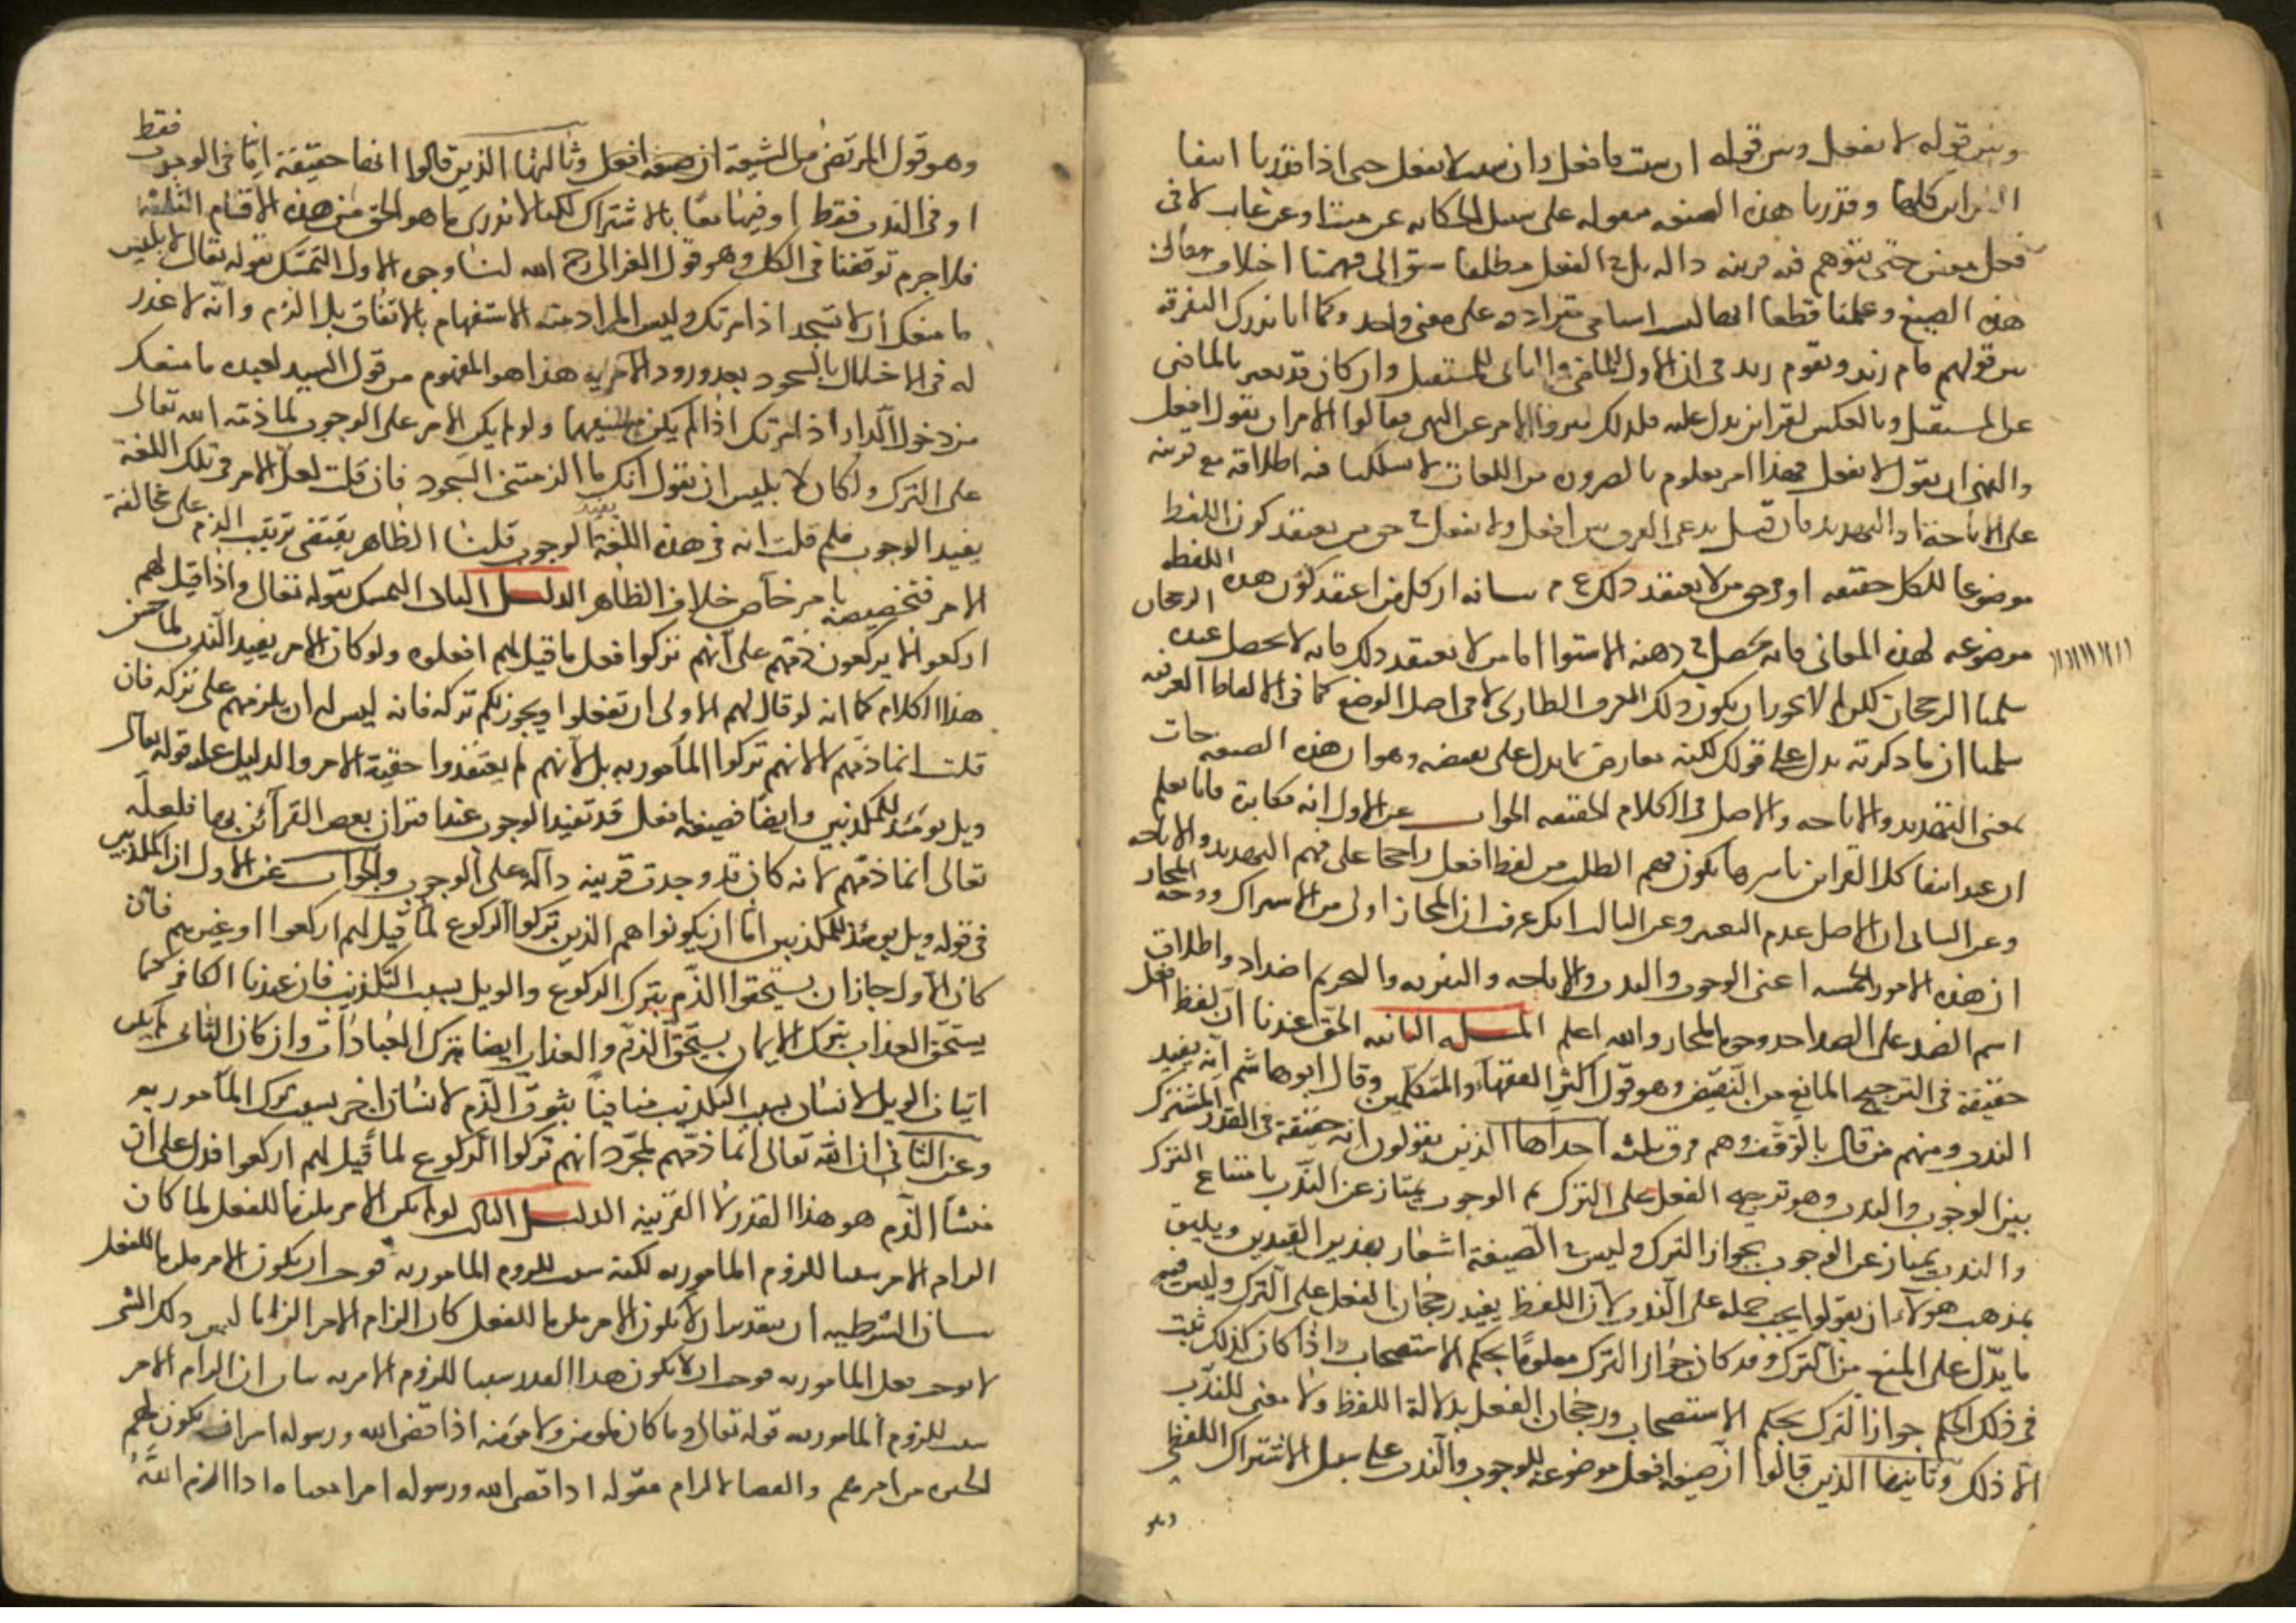 وبين قوله لا تفعل وبين قوله ان شئت فافعل وان شئت لا تفعل حتى اذا قدرنا انتفا
القراين كلها وقدرنا هذه الصيغه منقوله على سبيل الحكايه عن ميت او عن غايب لا فى
فعل معين حتى يتوهم فيه قرينه داله بل فى الفعل مطلقا سبق الى فهمنا اختلاف معانى
هذه الصيغ وعلمنا قطعا انها ليست اسامى مترادفه على معنى واحد وكما انا ندرك التفرقه
بين قولهم قام زيد ويقوم زيد فى ان الاول للماضى والثانى للمستقبل وان كان قد يعبر بالماضى
عن المستقبل وبالعكس لقراين تدل عليه فلذلك ميزوا الامر عن النهى فقالوا الامر ان يقول افعل
والنهى ان يقول لا تفعل فهذا امر معلوم بالضروره من اللغات لا يشككنا فيه اطلاقه مع قرينه
على الاباحة او التهديد فان قيل تدعى الفرق بين افعل ولا تفعل فى حق من يعتقد كون اللفظ
موضوعا للكل حقيقه او فى حق من لا يعتقد ذلك ع م بيانه ان كل من اعتقد كون هذه اللفظه
موضوعه لهذه المعانى فانه يحصل فى ذهنه الاستوا اما من لا يعتقد ذلك فانه لا يحصل عنده الرجحان
سلمنا الرجحان لكن لم لا يجوز ان يكون ذلك للعرف الطارى لا فى اصل الوضع كما فى الالفاظ العرفيه
سلمنا ان ما ذكرته يدل على قولك لكنه معارض بما يدل على نقيضه وهو ان هذه الصيغه جات
بمعنى التهديد والاباحه والاصل فى الكلام الحقيقه الجواب عن الاول انه مكابرة فانا نعلم
ان عند انتفا كل القراين باسرها يكون فهم الطلب من لفظ افعل راجحا على فهم التهديد والاباحه
وعن الثانى ان الاصل عدم التغيير وعن الثالث انك عرفت ان المجاز اولى من الاشتراك ووجه المجاز
ان هذه الامور الخمسه اعنى الوجوب والندب والاباحه والتنزيه والتحريم اضداد واطلاق
اسم الضد على الضد احد وجوه المجاز والله اعلم المسله الثانيه الحق عندنا ان لفظ افعل
حقيقة فى الترجيح المانع من النقيض وهو قول اكثر الفقهاء والمتكلمين وقال ابو هاشم انه يفيد
الندب ومنهم من قال بالوقف وهم فرق ثلث احداها الذين يقولون انه حقيقة فى القدر المشترك
بين الوجوب والندب وهو ترجيح الفعل على الترك ثم الوجوب يمتاز عن الندب بامتناع الترك
والندب يمتاز عن الوجوب بجواز الترك وليس فى الصيغة اشعار بهذين القيدين ويليق
بمذهب هولاء ان يقولوا يجب حمله على الندب لان اللفظ يفيد رجحان الفعل على الترك وليس فيه
ما يدل على المنع من الترك وقد كان جواز الترك معلوما بحكم الاستصحاب واذا كان كذلك ثبت
فى ذلك الحكم جواز الترك بحكم الاستصحاب ورجحان الفعل بدلالة اللفظ ولا معنى للندب
الا ذلك وثانيها الذين قالوا ان صيغه افعل موضوعه للوجوب والندب على سبيل الاشتراك اللفظى
وهو
وهو قول المرتضى من الشيعة ان صيغه افعل وثالثها الذين قالوا انها حقيقة اما فى الوجوب فقط
او فى الندب فقط او فيهما معا بالاشتراك لكنا لا ندرى ما هو الحق من هذه الاقسام الثلثه
فلا جرم توقفنا فى الكل وهو قول الغزالى رح الله لنا وجوه الاول التمسك بقوله تعالى لابليس
ما منعك ان لا تسجد اذ امرتك وليس المراد منه الاستفهام بالاتفاق بل الذم وانه لا عذر
له فى الاخلال بالسجود بعد ورود الامر به هذا هو المفهوم من قول السيد لعبده ما منعك
من دخول الدار اذ امرتك اذا لم يكن مستفهما ولو لم يكن الامر على الوجوب لما ذمه الله تعالى
على الترك ولكان لابليس ان يقول انك ما الزمتنى السجود فان قلت لعل الامر فى تلك اللغة
يفيد الوجوب فلم قلت انه فى هذه اللغة يفيد الوجوب قلنا الظاهر يقتضى ترتيب الذم على مخالفة
الامر فتخصيصه بامر خاص خلاف الظاهر الدليل الثانى التمسك بقوله تعالى واذا قيل لهم
اركعوا لا يركعون ذمهم على انهم تركوا فعل ما قيل لهم افعلوه ولو كان الامر يفيد الندب لما حسن
هذا الكلام كما انه لو قال لهم الاولى ان تفعلوا ويجوز لكم تركه فانه ليس له ان يذمهم على تركه فان
قلت انما ذمهم لا لانهم تركوا المأمور به بل لانهم لم يعتقدوا حقية الامر والدليل عليه قوله تعالى
ويل يومئذ للمكذبين وايضا فصيغه افعل قد تفيد الوجوب عند اقتران بعض القرآئن بها فلعله
تعالى انما ذمهم لانه كان قد وجدت قرينه دالة على الوجوب والجواب عن الاول ان المكذبين
فى قوله ويل يومئذ للمكذبين اما ان يكونوا هم الذين تركوا الركوع لما قيل لهم اركعوا او غيرهم فان
كان الاول جاز ان يستحقوا الذم بترك الركوع والويل بسبب التكذيب فان عندنا الكافر كما
يستحق العذاب بترك الايمان يستحق الذم والعذاب ايضا بترك العبادات وان كان الثانى لم يكن
اثبات الويل لانسان بسبب التكذيب منافيا ثبوت الذم لانسان اخر بسبب ترك المأمور به
وعن الثانى ان الله تعالى انما ذمهم لمجرد انهم تركوا الركوع لما قيل لهم اركعوا فدل على ان
منشأ الذم هو هذا القدر لا القرينه الدليل الثالث لو لم يكن الامر ملزما للفعل لما كان
الزام الامر سببا للزوم المامور به لكنه سبب للزوم المامور به فوجب ان يكون الامر ملزما للفعل
بيان الشرطيه ان بتقدير ان لا يكون الامر ملزما للفعل كان الزام الامر الزاما لشى وذلك الشى
لا يوجب فعل المامور به فوجب ان لا يكون هذا القدر سببا للزوم الامر به بيان ان الزام الامر
سبب للزوم المامور به قوله تعالى وما كان لمومن ولا مومنه اذا قضى الله ورسوله امرا ان يكون لهم
الخيره من امرهم والقضا الالزام فقوله اذا قضى الله ورسوله امرا معناه اذا الزم الله